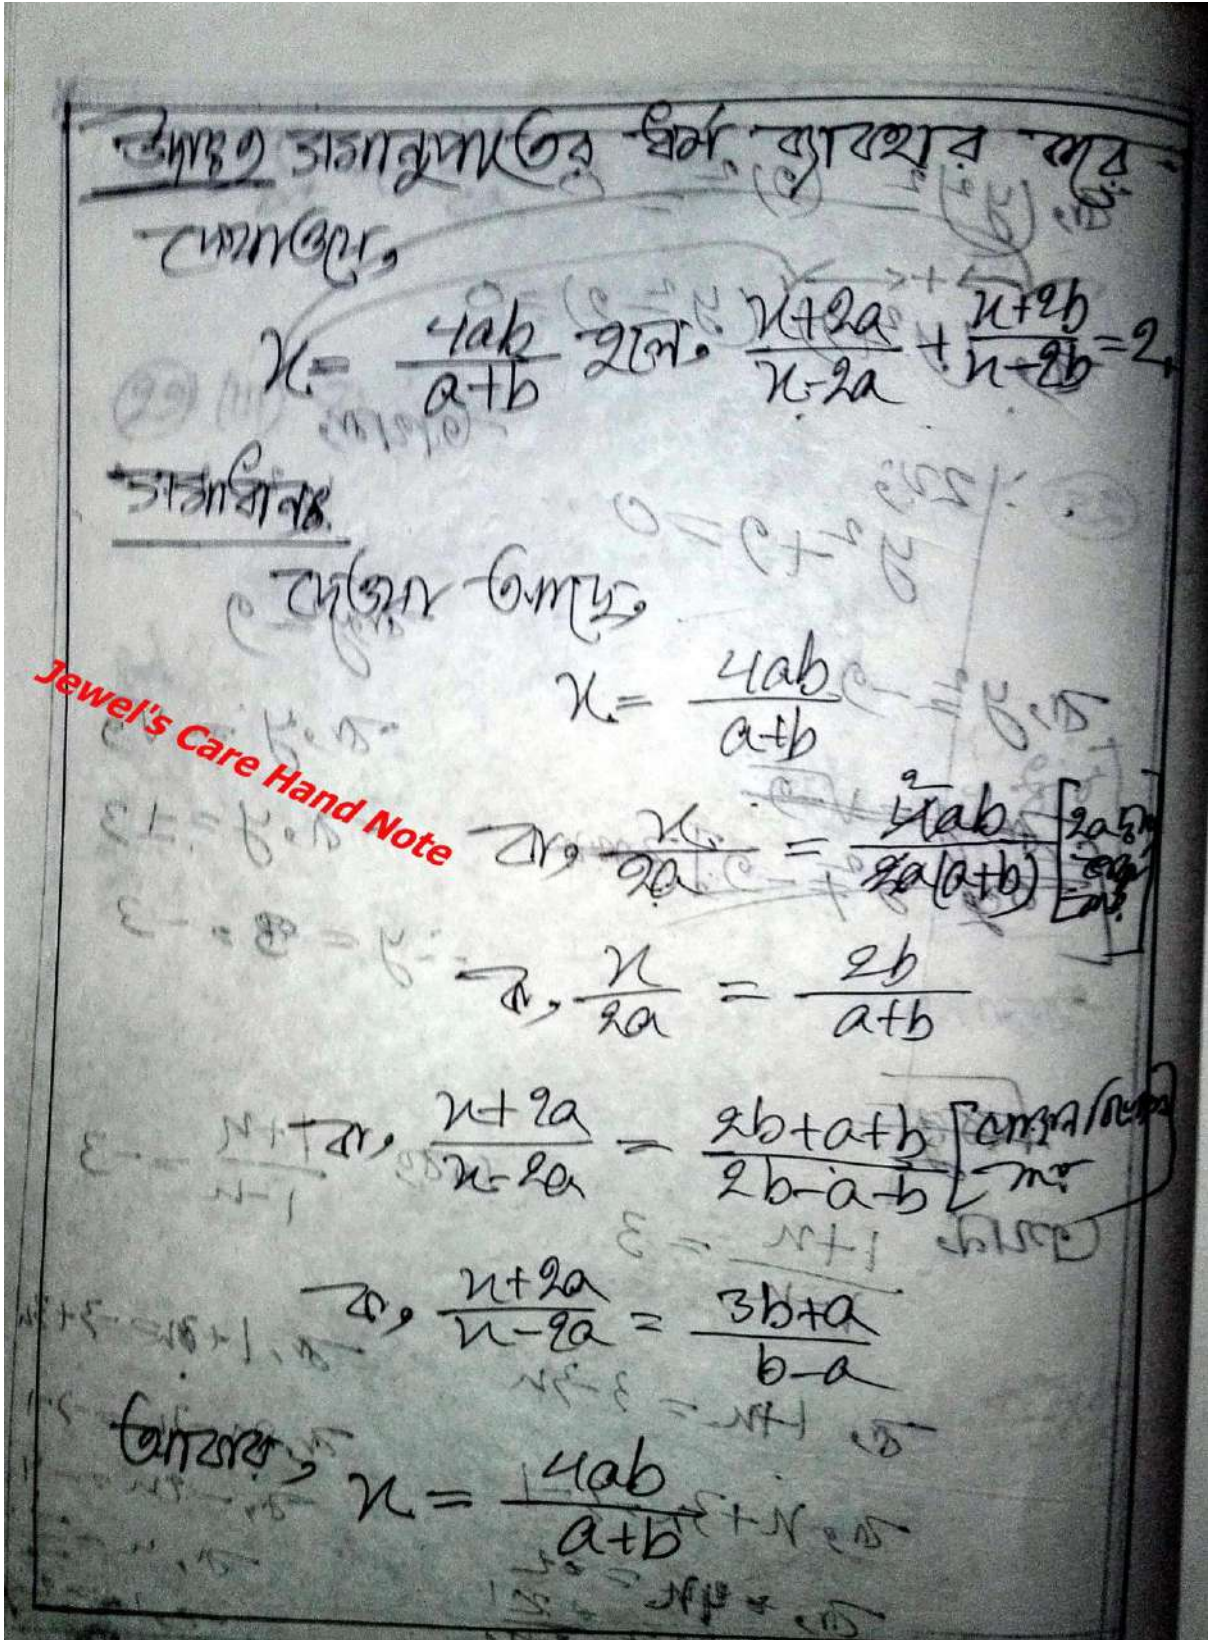 উদাঃ২ সমানুপাতের ধর্ম ব্যাবহার করে
দেখাওযে,
x = 4ab/(a+b) হলে, (x+2a)/(x-2a) + (x+2b)/(x-2b) = 2
সমাধানঃ
দেওয়া আছে,
x = 4ab/(a+b)
Jewel's Care Hand Note
বা, x/2a = 4ab/2a(a+b) [2a দ্বারা
বা, x/2a = 2b/(a+b)
বা, (x+2a)/(x-2a) = (2b+a+b)/(2b-a-b) [যোজন/বিয়োজন
বা, (x+2a)/(x-2a) = (3b+a)/(b-a)
আবার, x = 4ab/(a+b)